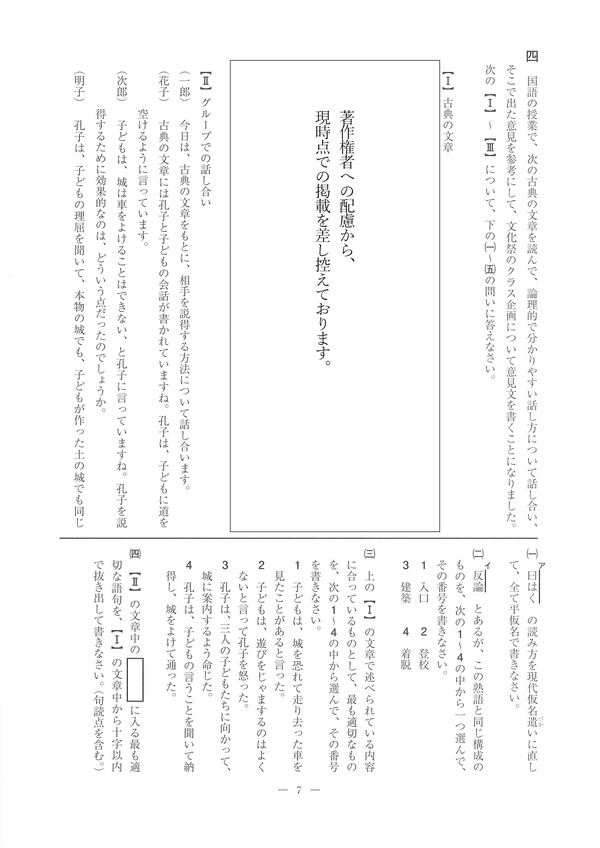 四 国語の授業で、次の古典の文章を読んで、論理的で分かりやすい話し方について話し合い、
そこで出た意見を参考にして、文化祭のクラス企画について意見文を書くことになりました。
次の【Ⅰ】～【Ⅲ】について、下の㈠～㈤の問いに答えなさい。
【Ⅰ】古典の文章
著作権者への配慮から、
現時点での掲載を差し控えております。
【Ⅱ】グループでの話し合い
（一郎） 今日は、古典の文章をもとに、相手を説得する方法について話し合います。
（花子） 古典の文章には孔子と子どもの会話が書かれていますね。孔子は、子どもに道を
空けるように言っています。
（次郎） 子どもは、城は車をよけることはできない、と孔子に言っていますね。孔子を説
得するために効果的なのは、どういう点だったのでしょうか。
（明子） 孔子は、子どもの理屈を聞いて、本物の城でも、子どもが作った土の城でも同じ
㈠ ア曰はく の読み方を現代仮名遣づかいに直し
て、全て平仮名で書きなさい。
㈡ イ反論 とあるが、この熟語と同じ構成の
ものを、次の1～4の中から一つ選んで、
その番号を書きなさい。
1 入口 2 登校
3 建築 4 着脱
㈢ 上の【Ⅰ】の文章で述べられている内容
に合っているものとして、最も適切なもの
を、次の1～4の中から選んで、その番号
を書きなさい。
1 子どもは、城を恐れて走り去った車を
見たことがあると言った。
2 子どもは、遊びをじゃまするのはよく
ないと言って孔子を怒った。
3 孔子は、三人の子どもたちに向かって、
城に案内するよう命じた。
4 孔子は、子どもの言うことを聞いて納
得し、城をよけて通った。
㈣ 【Ⅱ】の文章中の に入る最も適
切な語句を、【Ⅰ】の文章中から十字以内
で抜き出して書きなさい。（句読点を含む。）
— 7 —